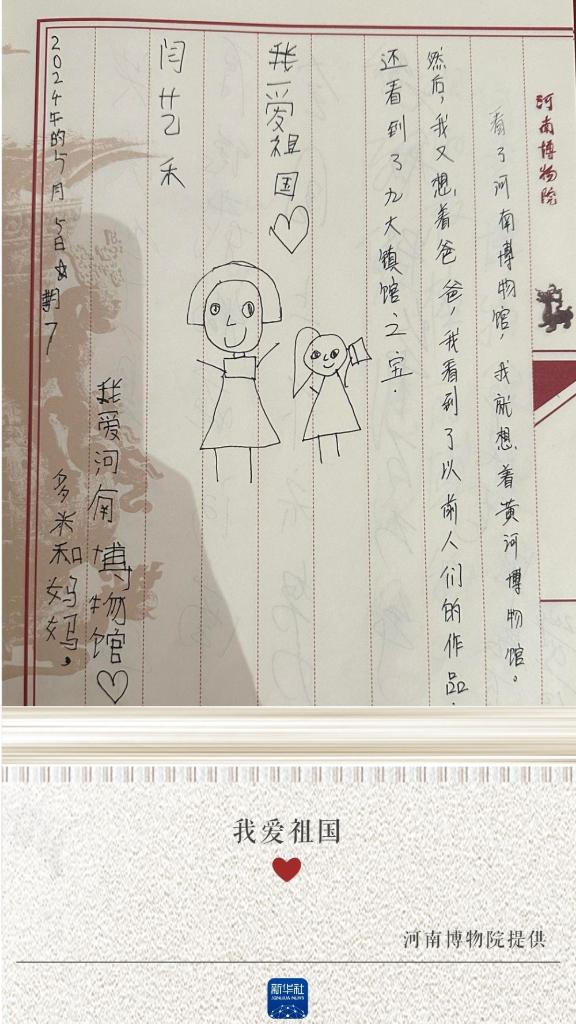 河南博物院
看了河南博物馆，我就想着黄河博物馆。
然后，我又想，着爸爸，我看到了以前人们的作品.
还看到了九大镇馆之宝.
我爱祖国♡
闫艺禾
我爱河南博物馆♡
多米和妈妈，
2024年的5月5日星期7
我爱祖国
河南博物院提供
新华社
XINHUA NEWS